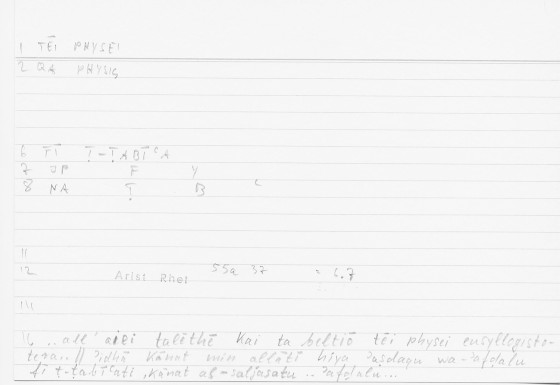 1 TĒI PHYSEI
2 QA PHYSIS
6 FĪ Ṭ-ṬABĪʿA
7 UP F Y
8 NA Ṭ B ʿ
11
12 Arist Rhet 55a 37 = 6.7
14 ..all' aiei talēthē kai ta beltiō tēi physei eusyllogisto-
tera.. || ʾidhā kānat min allātī hiya ʾaṣdaqu wa-ʾafḍalu
fī ṭ-ṭabīʿati, kānat al-saljasatu .. ʾafḍalu...